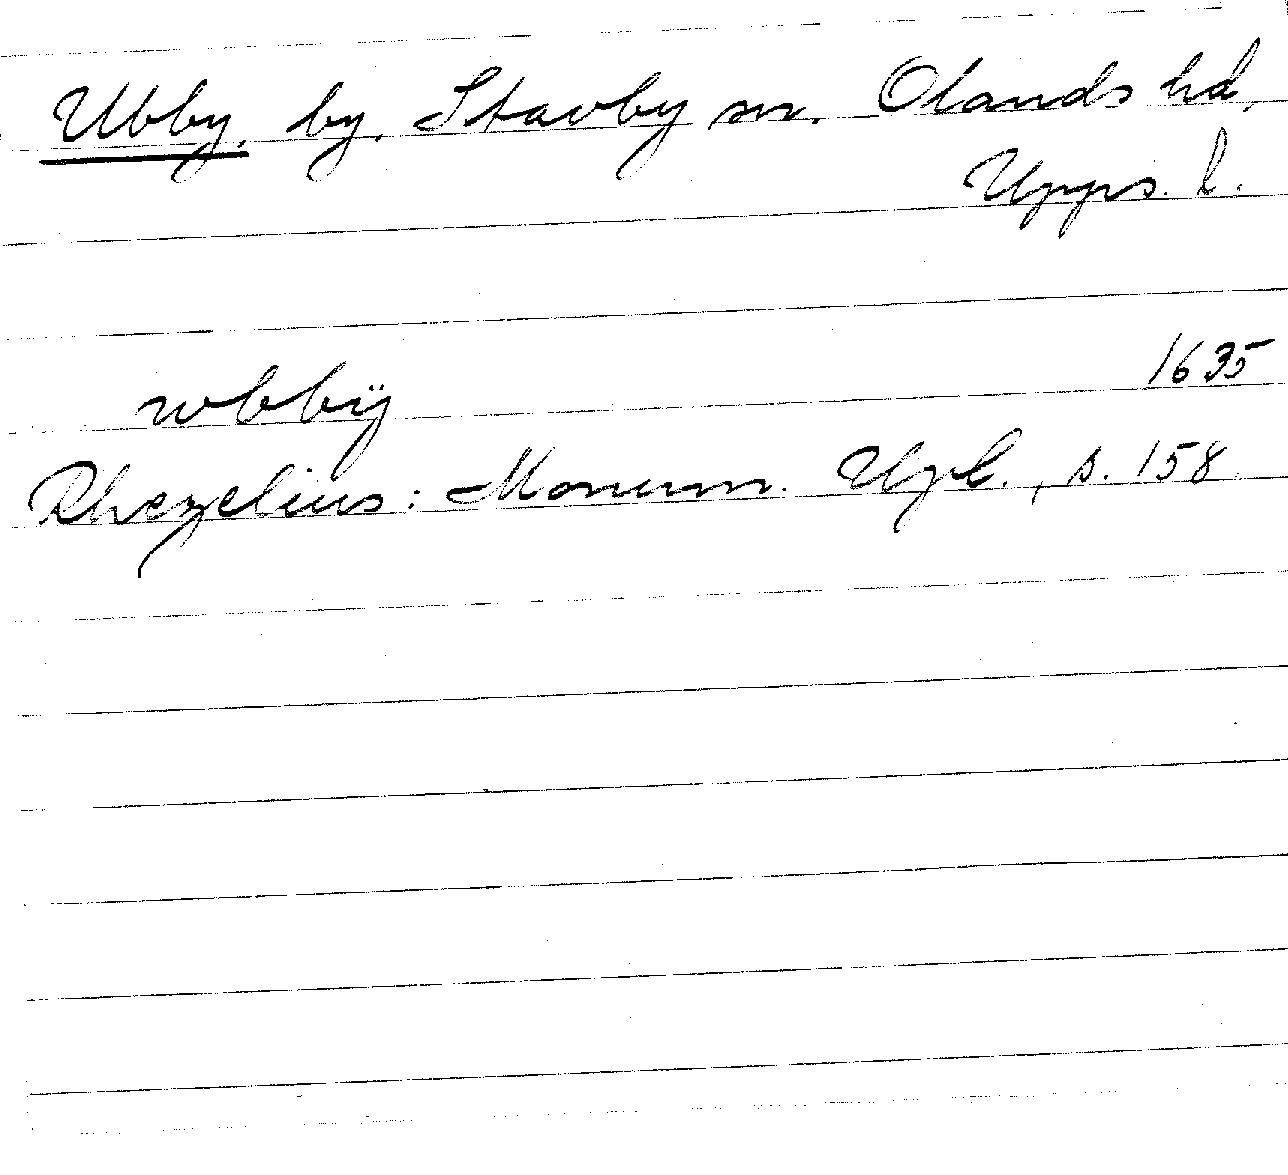 Ubby, by, Stavby sn. Olands hd,
Upps. l.
wbbÿ 1635
Rhezelius: Monum. Upl., s. 158